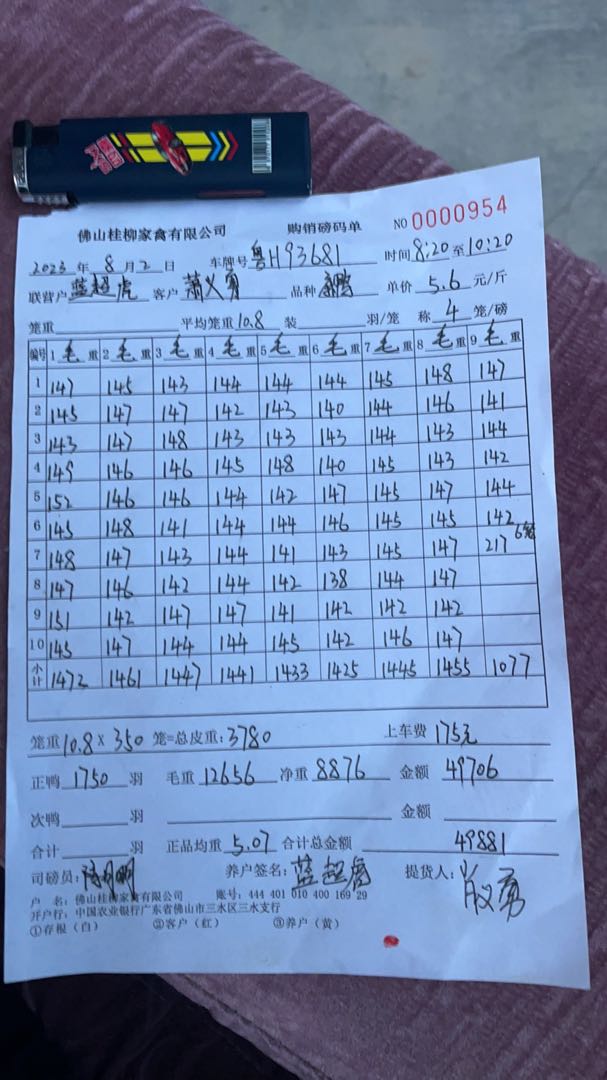 佛山桂柳家禽有限公司 购销磅码单 NO 0000954
2023 年 8 月 2 日 车牌号 粤H93681 时间 8:20 至 10:20
联营户 蓝超虎 客户 萧义勇 品种 单价 5.6 元/斤
笼重 平均笼重 10.8 装 羽/笼 称 4 笼/磅
编号 1 毛 重 2 毛 重 3 毛 重 4 毛 重 5 毛 重 6 毛 重 7 毛 重 8 毛 重 9 毛 重
1 147 145 143 144 144 144 145 148 147
2 145 147 147 142 143 140 144 146 141
3 143 147 148 143 143 143 144 143 144
4 149 146 146 145 148 140 145 143 142
5 152 146 146 144 142 147 145 147 144
6 145 148 141 144 144 146 145 145 142
7 148 147 143 144 141 143 145 147 217 6笼
8 147 146 142 144 142 138 144 147
9 151 142 147 147 141 142 142 142
10 145 147 144 144 145 142 146 147
小计 1472 1461 1447 1441 1433 1425 1445 1455 1077
笼重 10.8 X 350 笼=总皮重: 3780 上车费 175元
正鸭 1750 羽 毛重 12656 净重 8876 金额 49706
次鸭 羽 金额
合计 羽 正品均重 5.07 合计总金额 49881
司磅员: 养户签名: 蓝超虎 提货人: 肖义勇
户 名: 佛山桂柳家禽有限公司 账号: 444 401 010 400 169 29
开户行: 中国农业银行广东省佛山市三水区三水支行
①存根（白） ②客户（红） ③养户（黄）